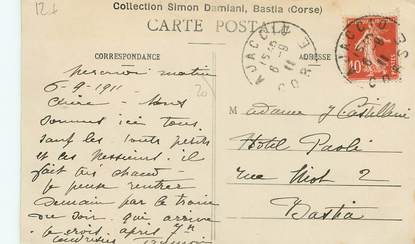 12 f
Collection Simon Damiani, Bastia (Corse)
CARTE POSTALE
CORRESPONDANCE
ADRESSE
AJACCIO
6 -9
11
CORSE
AJACCIO
11
CORSE
10
20
matin
6-9-1911
Chère
sommes ici tous
sauf les touts petits
et ces Messieurs. il
fait très chaud
Je pense rentrer
demain par le train
du soir qui arrive
je crois après 7h
M adame J Castellini
Hotel Paoli
rue Miot 2
Bastia